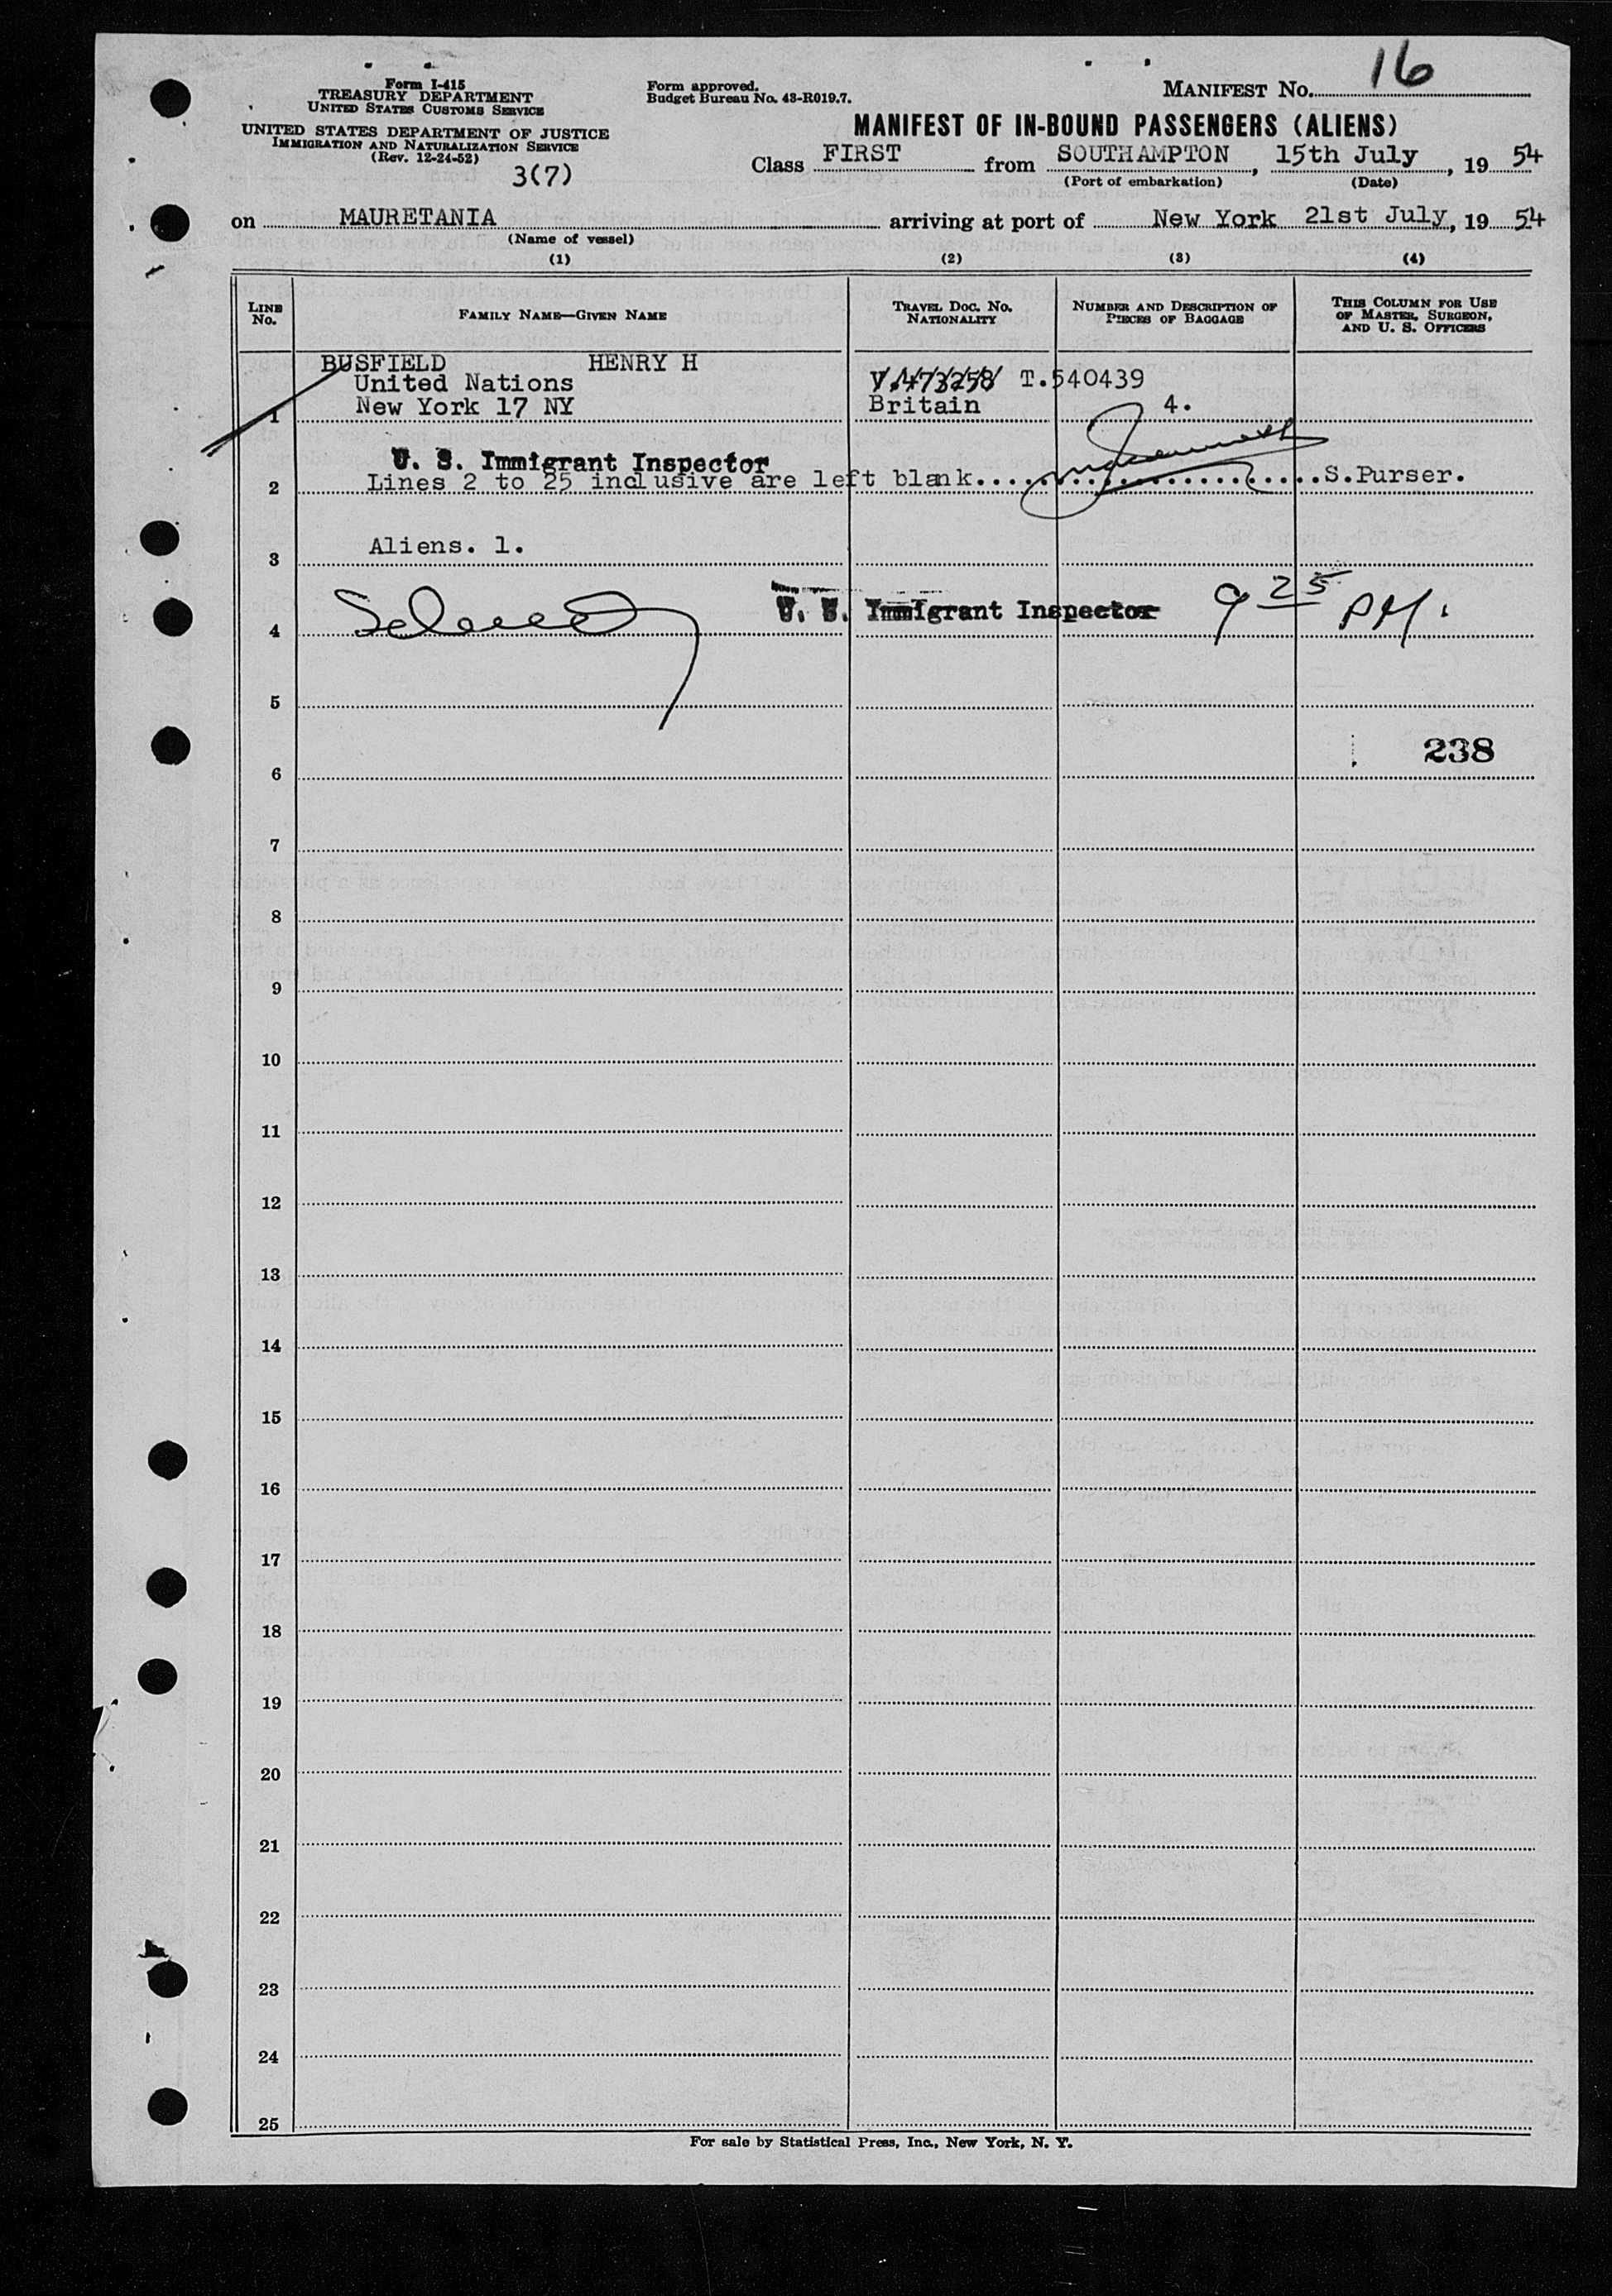 Form I-415
TREASURY DEPARTMENT
UNITED STATES CUSTOMS SERVICE
UNITED STATES DEPARTMENT OF JUSTICE
IMMIGRATION AND NATURALIZATION SERVICE
(Rev. 12-24-52)
3(7)
Form approved.
Budget Bureau No. 43-R019.7.
MANIFEST NO. 16
MANIFEST OF IN-BOUND PASSENGERS (ALIENS)
Class FIRST from SOUTHAMPTON, 15th July, 19 54
(Port of embarkation) (Date)
on MAURETANIA arriving at port of New York 21st July, 19 54
(Name of vessel)
(1) (2) (3) (4)
LINE NO.
FAMILY NAME—GIVEN NAME
TRAVEL DOC. NO. NATIONALITY
NUMBER AND DESCRIPTION OF PIECES OF BAGGAGE
THIS COLUMN FOR USE OF MASTER, SURGEON, AND U. S. OFFICERS
BUSFIELD HENRY H
United Nations V.473258 T.540439
1 New York 17 NY Britain 4.
U. S. Immigrant Inspector
2 Lines 2 to 25 inclusive are left blank. S.Purser.
3 Aliens. 1.
4 U. S. Immigrant Inspector 9 25 PM.
5
238
6
7
8
9
10
11
12
13
14
15
16
17
18
19
20
21
22
23
24
25
For sale by Statistical Press, Inc., New York, N. Y.